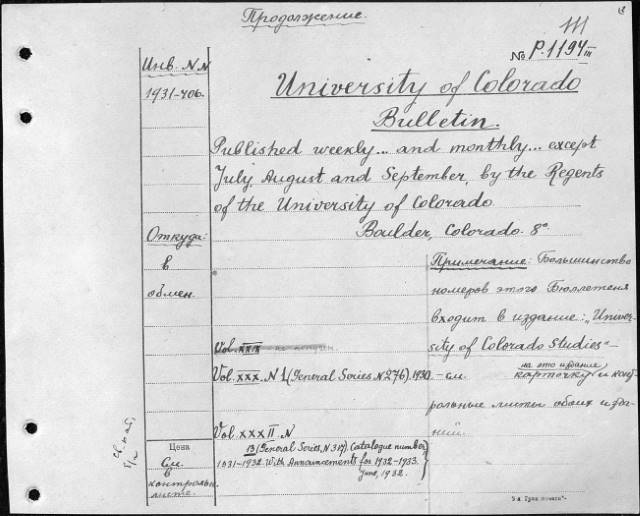 Продолжение.
III
№ P.1194 III
Инв. NN
1931-406.
University of Colorado
Bulletin.
Published weekly... and monthly... except
July, August and September, by the Regents
of the University of Colorado
Boulder, Colorado. 8°
Откуда:
в
обмен.
Примечание: Большинство
номеров этого Бюллетеня
входит в издание: „Univer-
sity of Colorado Studies"-
Vol. XXIX
Vol. XXX. N 1 (General Series N 276). 1930
-см. на это издание карточку и конт-
рольные листы обоих изда-
ний.
Vol. XXXII. N
13 (General Series, N 317). Catalogue number
1931-1932. With Announcements for 1932-1933.
June, 1932.
Цена
См.
в
контрольн.
листе.